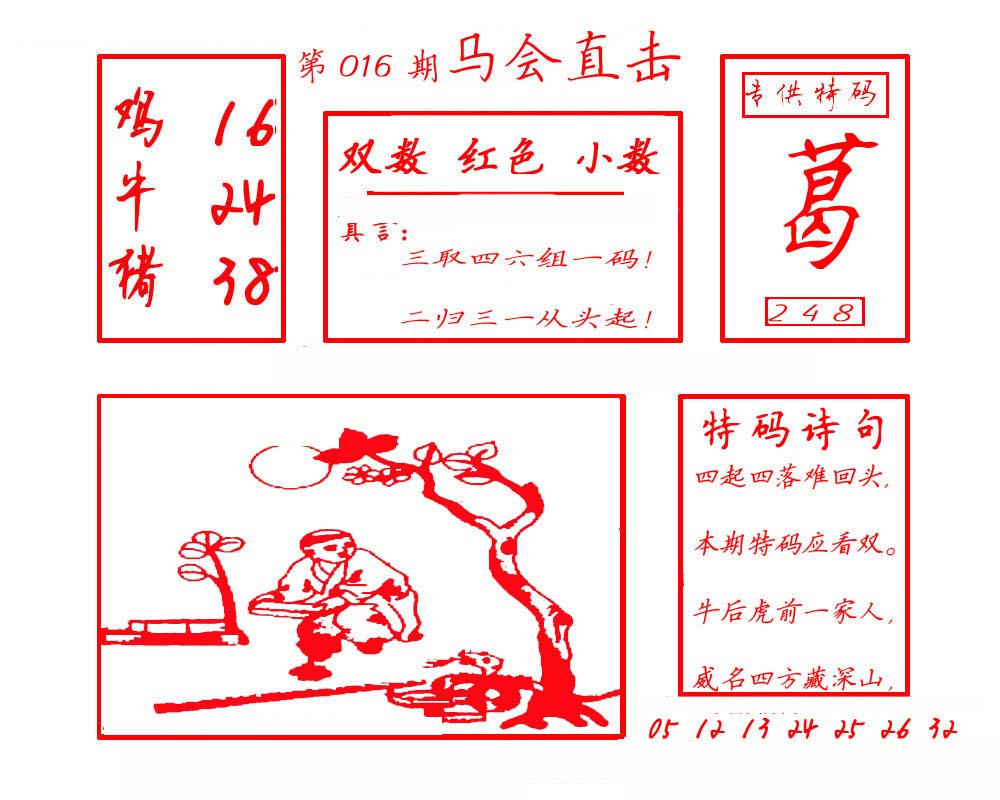 第 016 期 马会直击
鸡 16
牛 24
猪 38
双数 红色 小数
具言：
三取四六组一码！
二归三一从头起！
专供特码
葛
248
特码诗句
四起四落难回头，
本期特码应看双。
牛后虎前一家人，
威名四方藏深山，
05 12 13 24 25 26 32